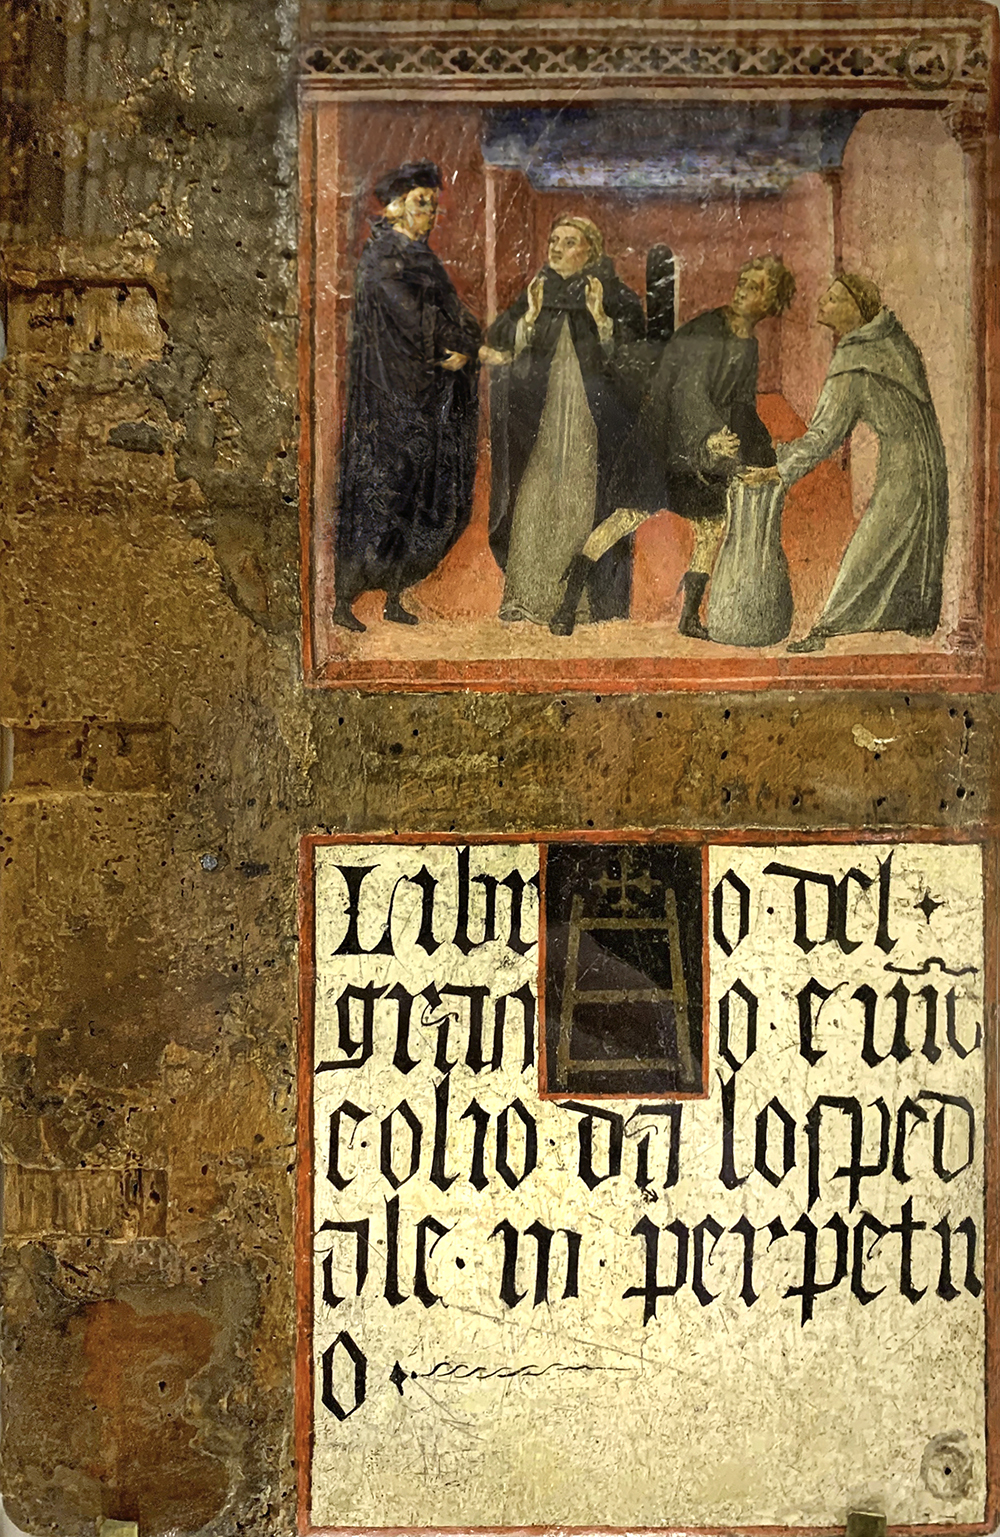 Libro · del ·
grano · e uino
e · olio · da losped
ale · in · perpetu
o